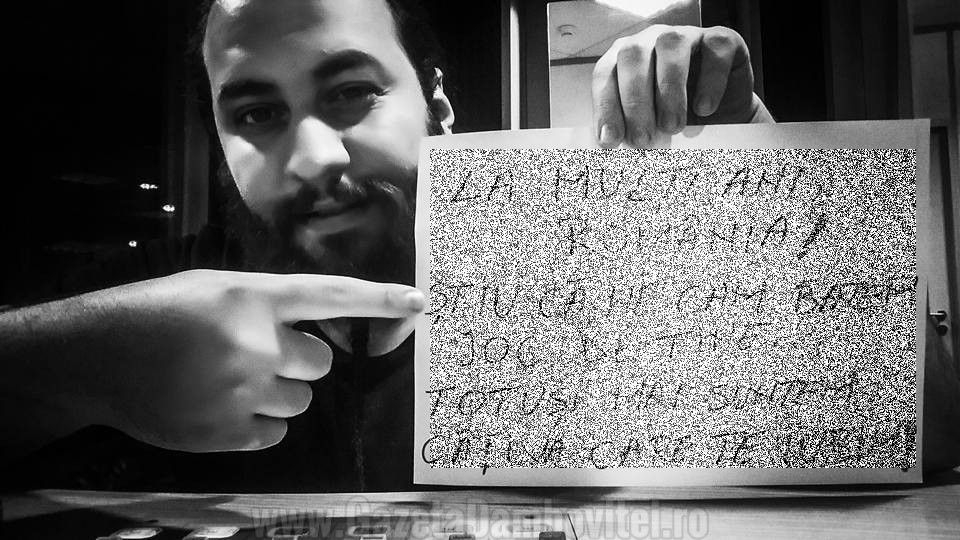 LA MULȚI ANI,
ROMÂNIA,
ȘTIU CĂ NE CAM BATEM
JOC DE TINE.
TOTUȘI MAI SUNTEM
CÂȚIVA CARE TE IUBIM!
www.GazetaDambovitei.ro